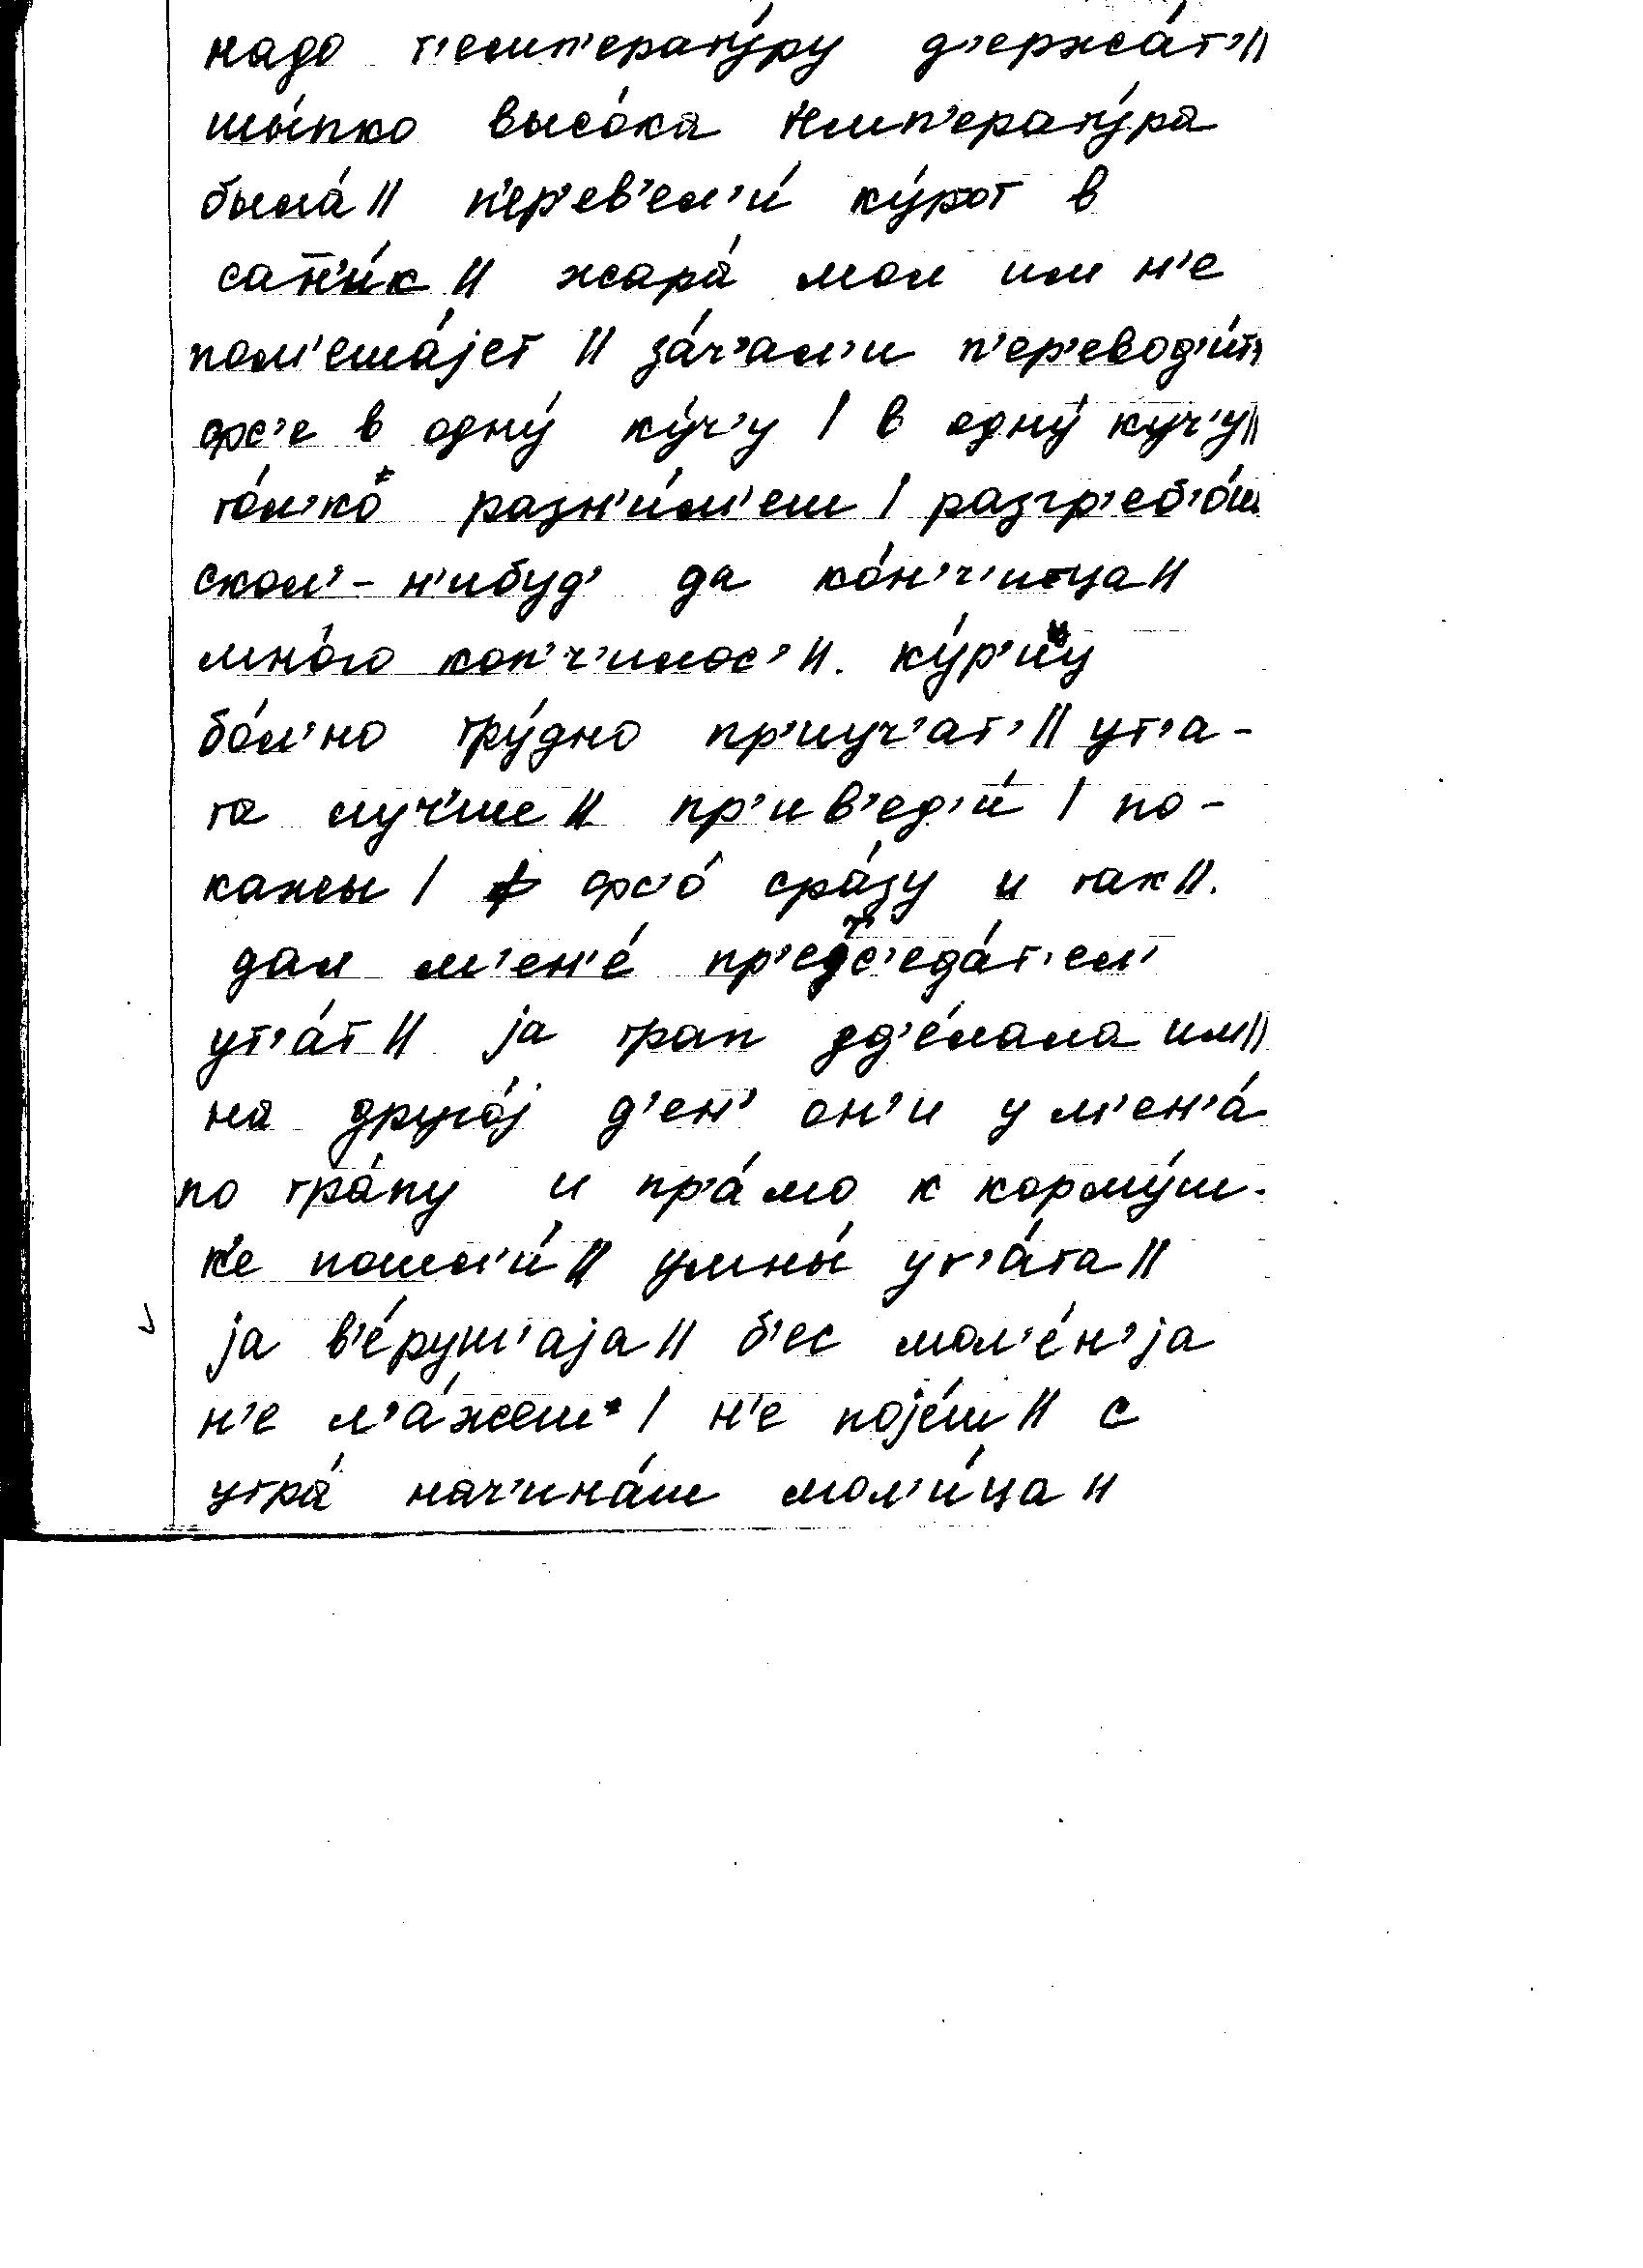 надо т'емп'ерату́ру д'ержа́т'||
шы́пко высо́ка темп'ерату́ра
была́|| п'ер'ев'ел'и́ ку́рот в
сат'н'и́к || жара́ мол им н'е
пом'еша́jет || за́ч'ал'и п'ер'евод'и́т'
фс'е в одну́ ку́ч'у | в одну́ куч'у||
то́л'ко разн'и́м'еш | разгр'еб'о́ш
скол'-н'ибуд' да ко́н'ч'ица||
мно́го кон'ч'илос'||. ку́р'ицу
бо́л'но тру́дно пр'иуч'ат'|| ут'а-
та луч'ше || пр'ив'ед'и́ | по-
кажы | фс'о́ сра́зу и так||.
дал м'ен'е́ пр'етс'еда́т'ел'
ут'а́т || jа трап зд'е́лала им||
на друго́j д'ен' он'и у м'ен'а́
по тра́пу и пр'а́мо к корму́ш-
к'е пошл'и́ || умны́ ут'а́та ||
jа в'е́руш'аjа || б'ес мол'е́н'jа
н'е л'а́жеш | н'е поjе́ш || с
утра́ нач'ина́ш мол'и́ца ||